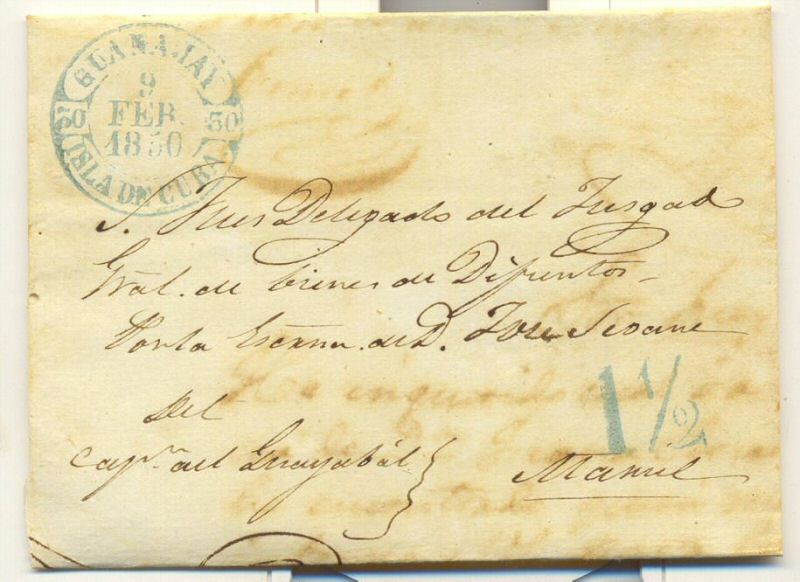 GUANAJAY
9
FEB.
1850
30 30
ISLA DE CUBA
S. Jues Delegado del Jusgado
Gral. de bienes de Difuntos
Por la Escrna. de D. Jose Seoane
1 1/2
Del
Capn. del Guayabál
Mariel